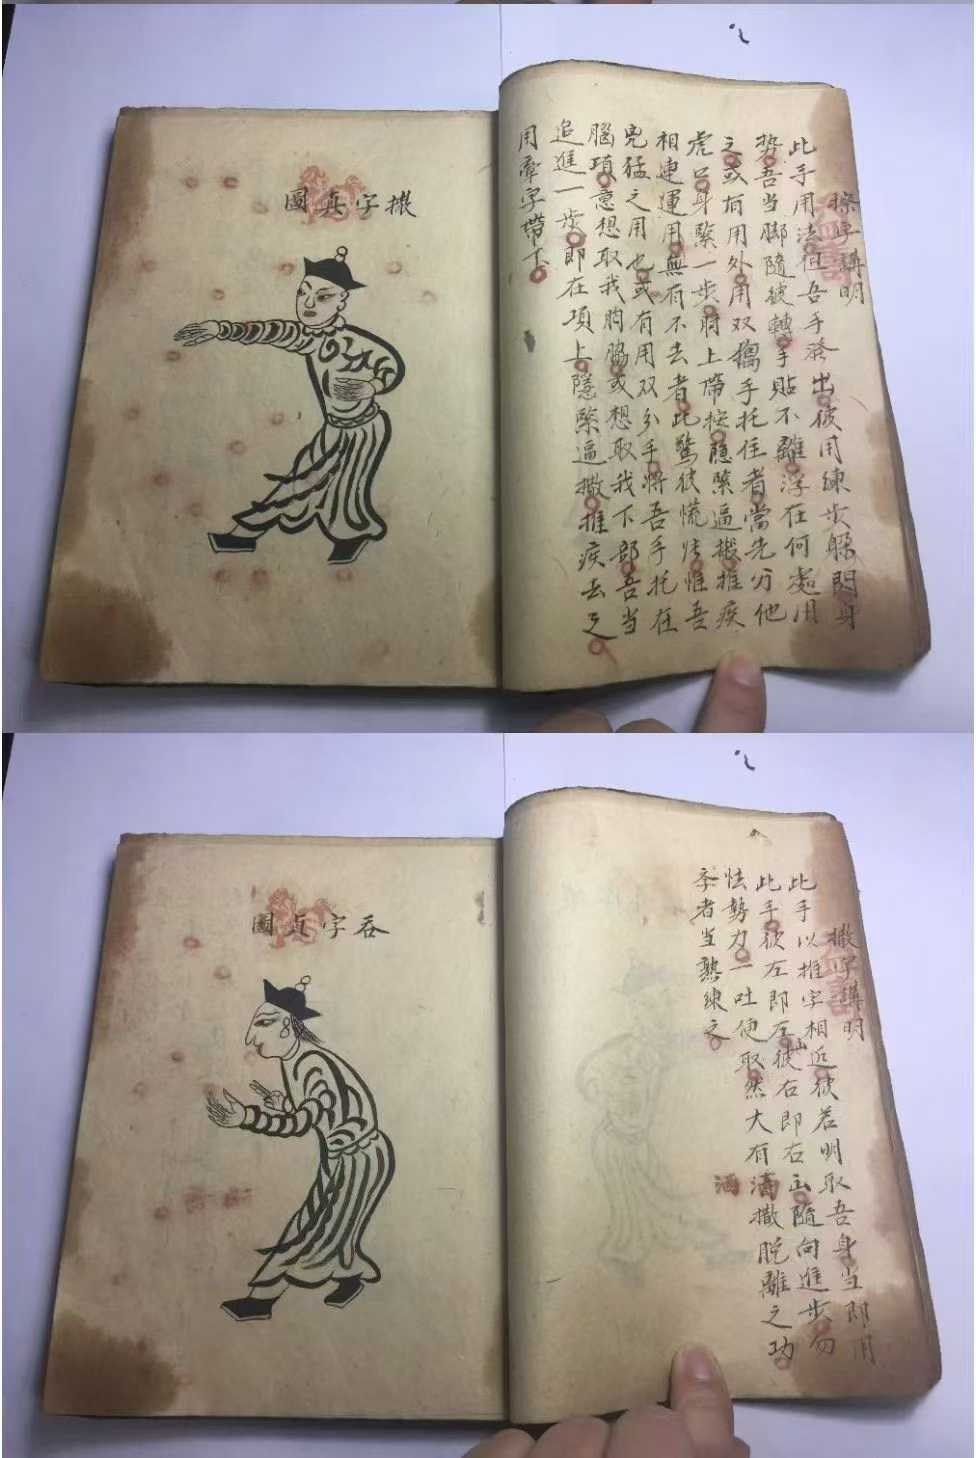 搽字講明
此手用法但吾手發出彼用練步躲閃身
势吾当脚隨彼轉手貼不離浮在何處用
之或有用外用双搊手托住者當先分他
虎口身緊一步肘上帶按隱緊逼搬推疾
相連運用無有不去者此驚彼慌怯惟吾
兇猛之用也或有用双分手將吾手托在
腦項意想取我胸脇或想取我下部吾当
追進一步即在項上隱緊逼撒推疾去之
用牽字帶下
圖真字撒
撒字講明
此手以推字相近彼若明取吾身当即用
此手彼左即左出彼右即右出隨向進步勿
怯勢力一吐便取然大有洒撒脫離之功
孝者当熟練之
洒
圖真字吞